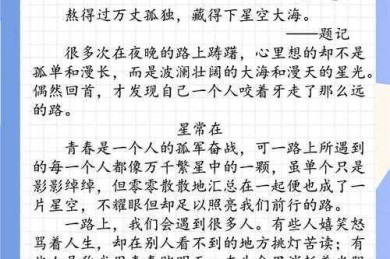 熬得过万丈孤独，藏得下星空大海。
——题记
很多次在夜晚的路上踌躇，心里想的却不是
孤单和漫长，而是波澜壮阔的大海和漫天的星光。
偶然回首，才发现自己一个人咬着牙走了那么远
的路。
星常在
青春是一个人的孤军奋战，可一路上所遇到
的每一个人都像万千繁星中的一颗，虽单个只是
影影绰绰，但零零散散地汇总在一起便也成了一
片星空，不耀眼但却足以照亮我们前行的路。
一路上，我们会遇到很多人。有些人嬉笑怒
骂着人生，却在别人看不到的地方挑灯苦读；有